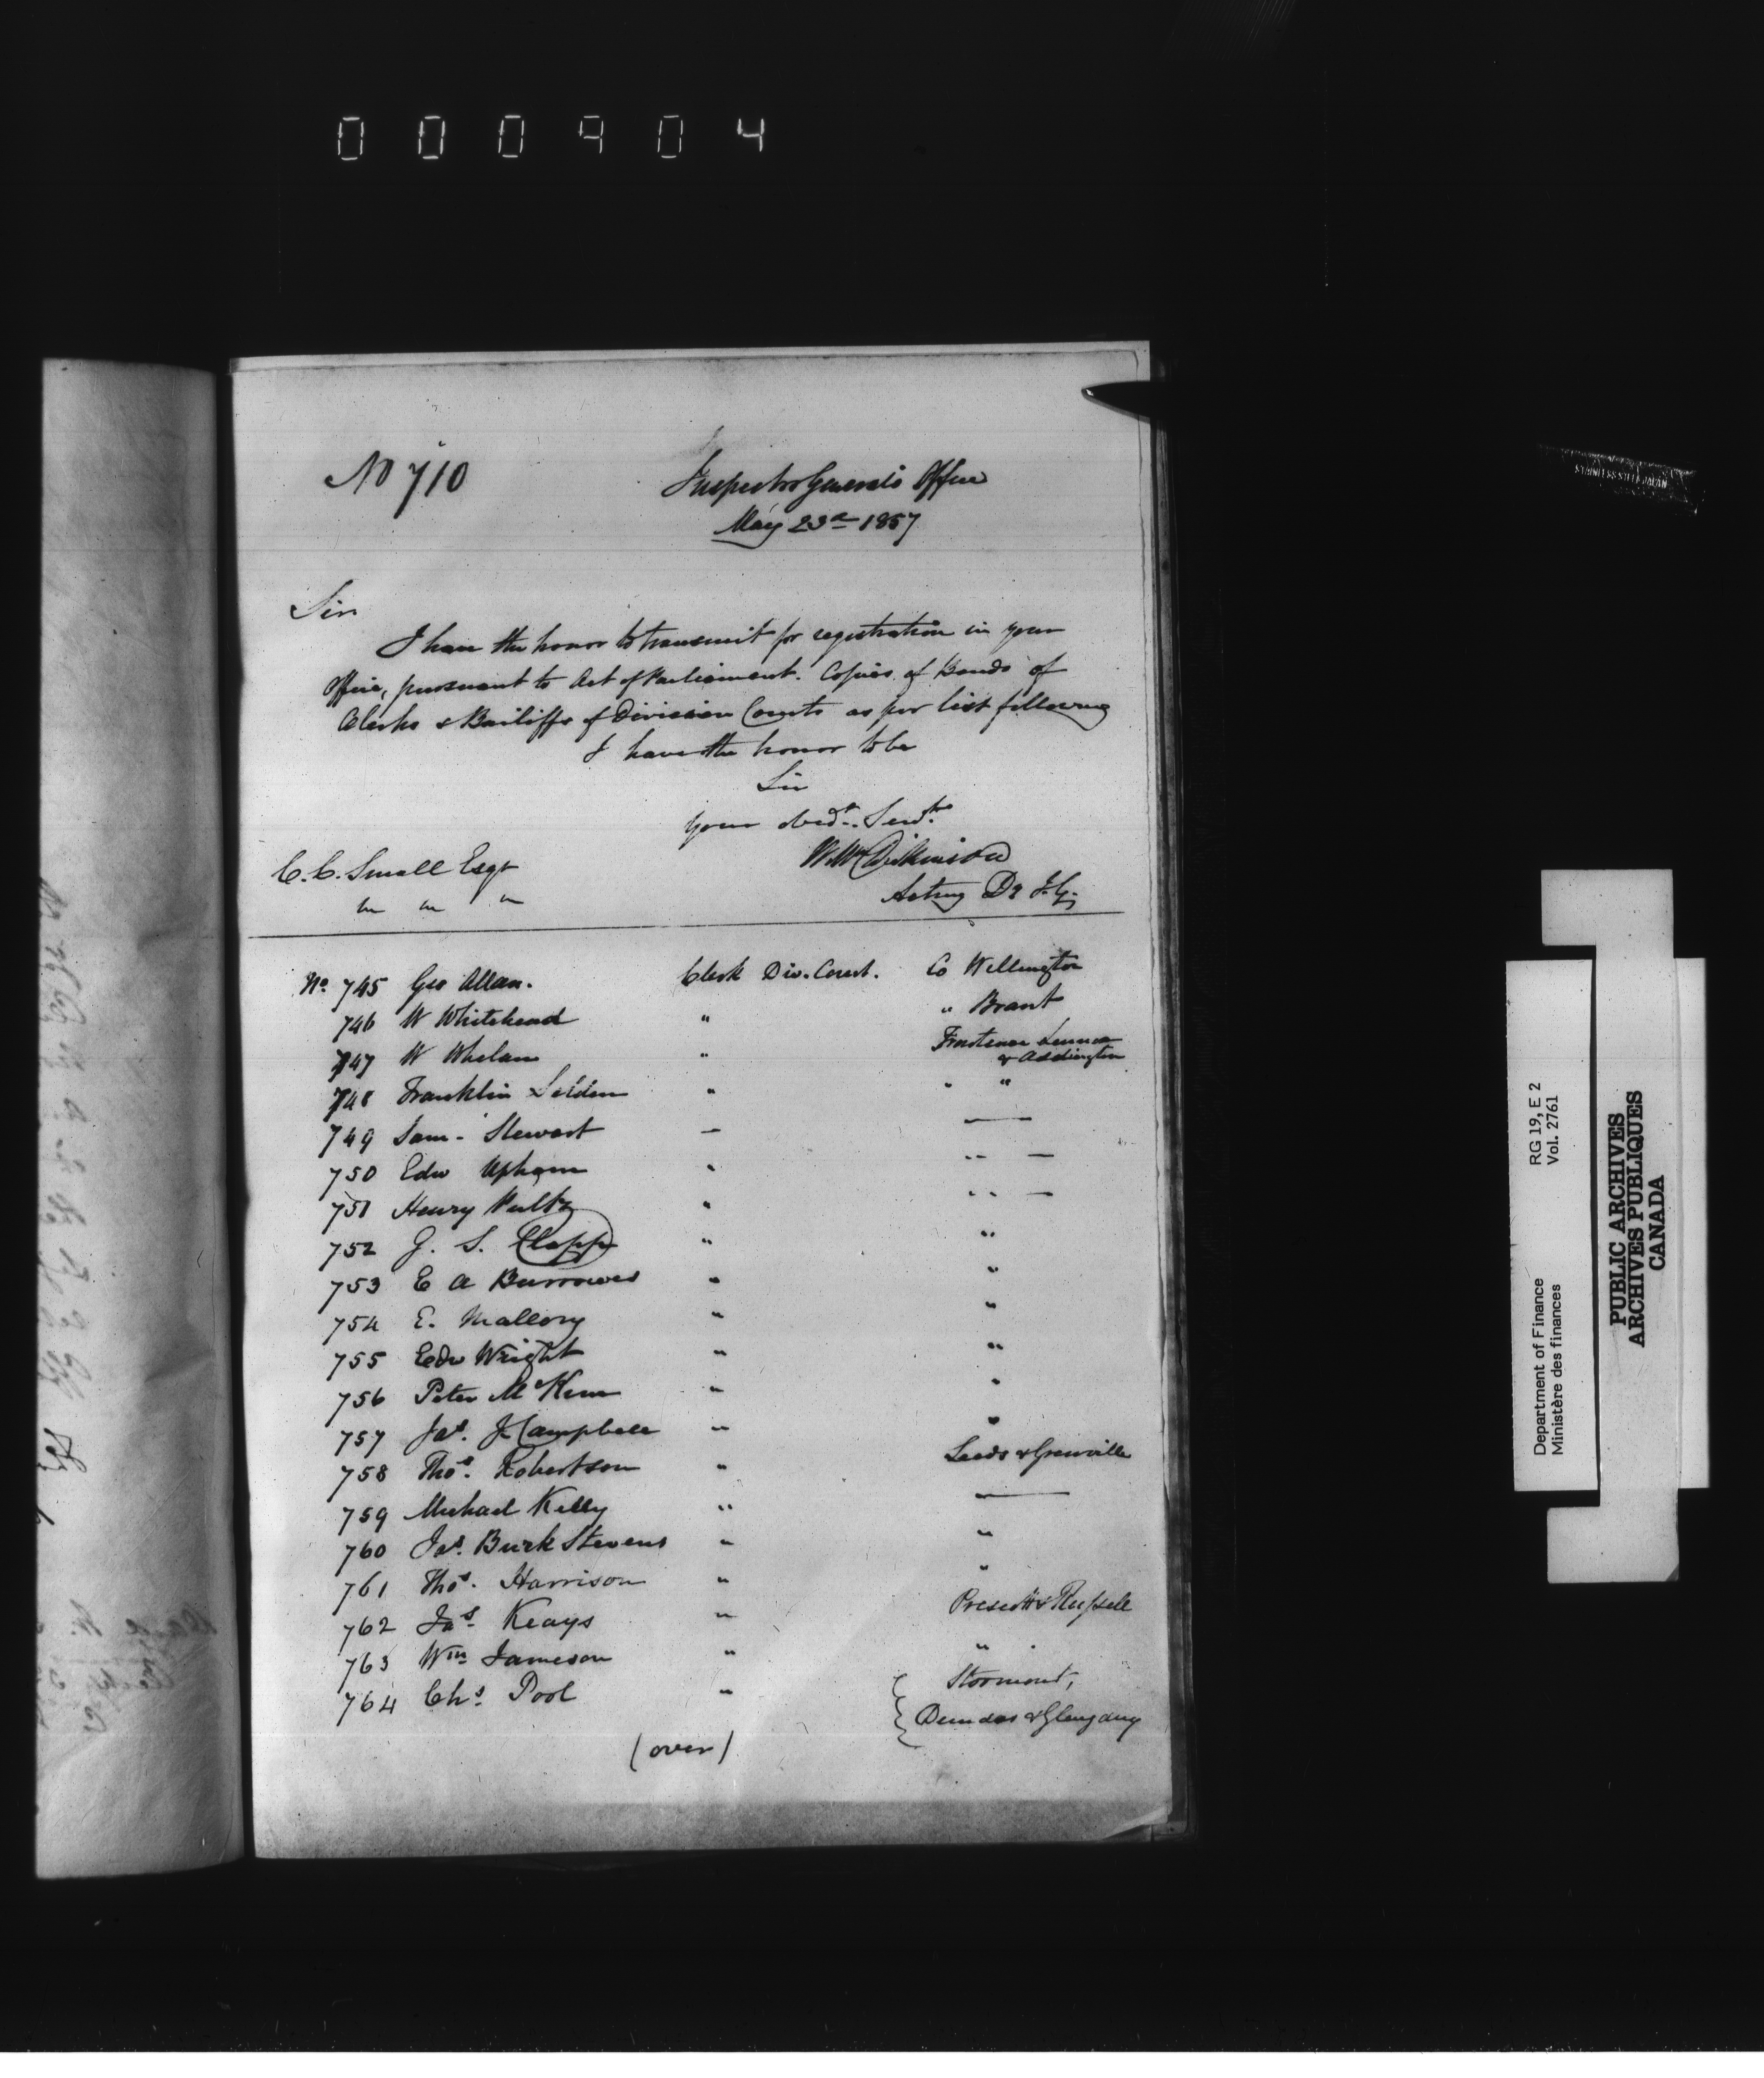 000904
No 710
Inspector General's Office
May 23d 1857
Sir
I have the honor to transmit for registration in your
Office, pursuant to Act of Parliament. Copies of Bonds of
Clerks & Bailiffs of Division Courts as per list following
I have the honor to be
Sir
Your obedt. Servt.
C. C. Small Esqr
W. Dickinson
" " "
Acting Dy I. G.
No. 745 Geo Allan. Clerk Div. Court. Co Wellington
746 W Whitehead " " Brant
747 W Whelan " Frontenac Lennox
& Addington
748 Franklin Selden " " "
749 Sam - Stewart — —
750 Edw Upham " " —
751 Henry " " —
752 J. S. Clapp " "
753 E A Burrowes " "
754 E. Mallory " "
755 Edw Wright " "
756 Peter McKim " "
757 Jas. J. Campbell " "
758 Thos. Robertson " Leeds & Grenville
759 Michael Kelly " —
760 Jas. Burk Stevens " "
761 Thos. Harrison " "
762 Jas. Keays " Prescott & Russell
763 Wm Jameson " "
764 Chs. Pool " Stormont,
Dundas & Glengary
(over)
Department of Finance RG 19, E 2
Ministère des finances Vol. 2761
PUBLIC ARCHIVES
ARCHIVES PUBLIQUES
CANADA